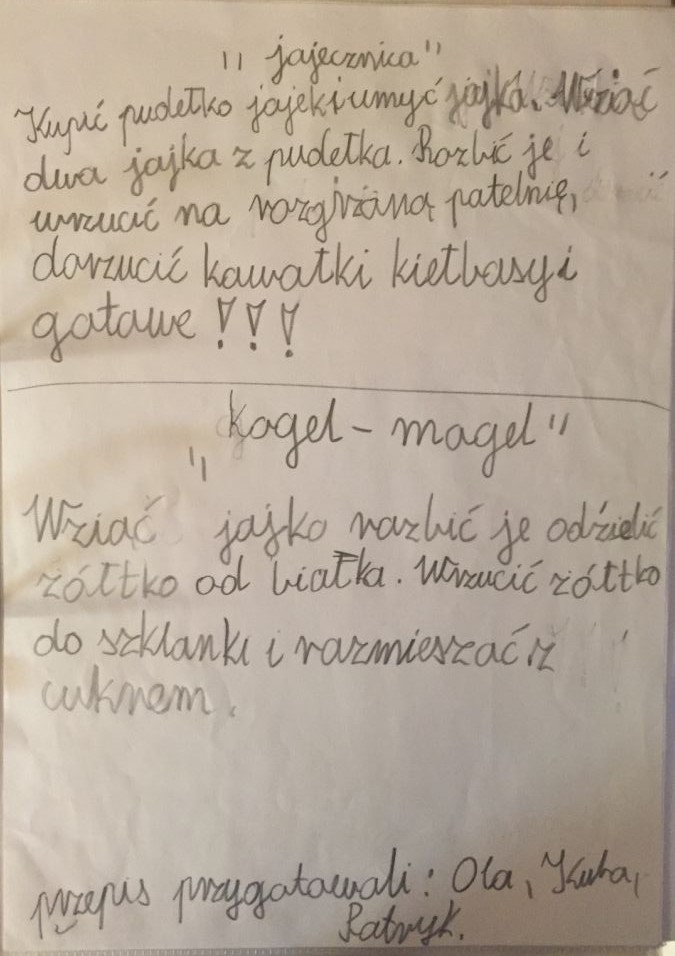 "jajecznica"
Kupić pudełko jajek i umyć jajka. Wziąć
dwa jajka z pudełka. Rozbić je i
wrzucić na rozgrzaną patelnię,
dorzucić kawałki kiełbasy i
gotowe!!!
"kogel-mogel"
Wziąć jajko rozbić je odzielić
żółtko od białka. Wrzucić żółtko
do szklanki i rozmieszać z
cukrem.
przepis przygotowali: Ola, Kuba,
Patryk.